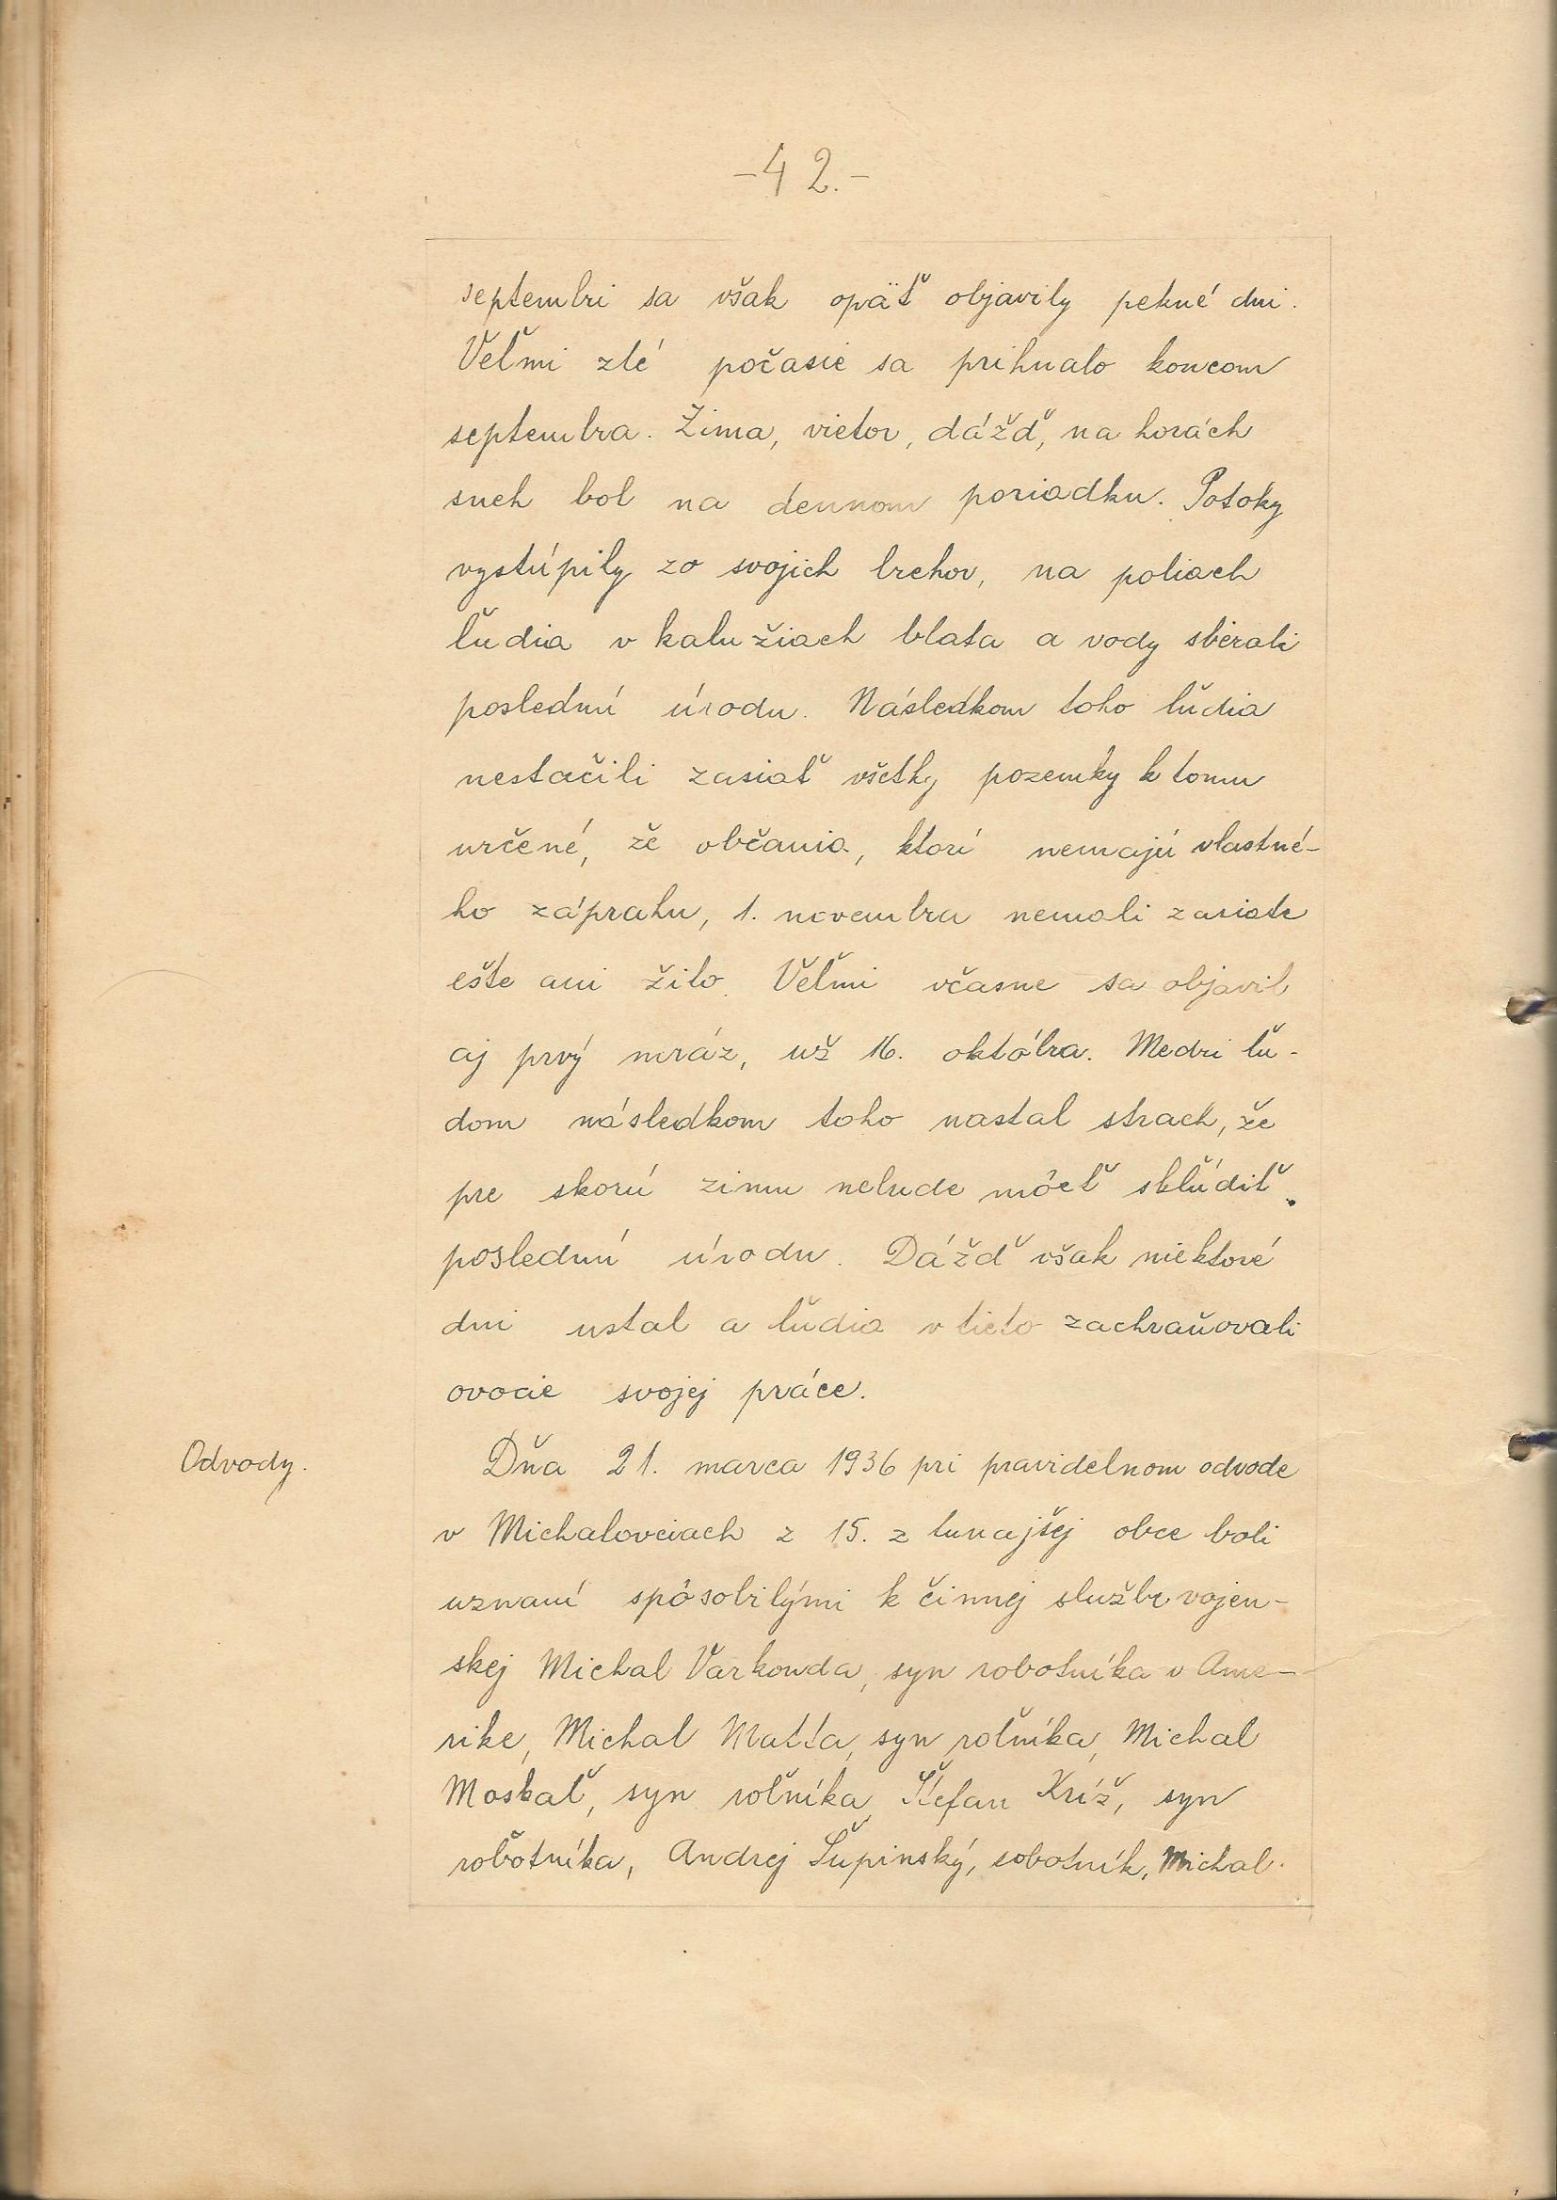 -42.-
septembri sa však opäť objavily pekné dni.
Veľmi zlé počasie sa prihnalo koncom
septembra. Zima, vietor, dážď, na horách
sneh bol na dennom poriadku. Potoky
vystúpily zo svojich brehov, na poliach
ľudia v kalužiach blata a vody sbierali
poslednú úrodu. Následkom toho ľudia
nestačili zasiať všetky pozemky k tomu
určené, že občania, ktorí nemajú vlastné-
ho záprahu, 1. novembra nemali zasiate
ešte ani žito. Veľmi včasne sa objavil
aj prvý mráz, už 16. októbra. Medzi ľu-
dom následkom toho nastal strach, že
pre skorú zimu nebude môcť skľúdiť
poslednú úrodu. Dážď však niektoré
dni ustal a ľudia v tieto zachraňovali
ovocie svojej práce.
Odvody.
Dňa 21. marca 1936 pri pravidelnom odvode
v Michalovciach z 15. z tunajšej obce boli
uznaní spôsobilými k činnej službe vojen-
skej Michal Varkonda, syn robotníka v Ame-
rike, Michal Matta, syn roľníka, Michal
Moskaľ, syn roľníka, Štefan Kríž, syn
robotníka, Andrej Šupinský, robotník, Michal